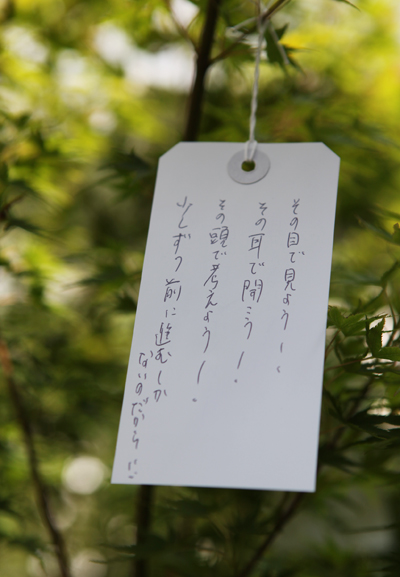 その目で見よう!
その耳で聞こう!
その頭で考えよう!
少しずつ前に進むしか
ないのだから!!